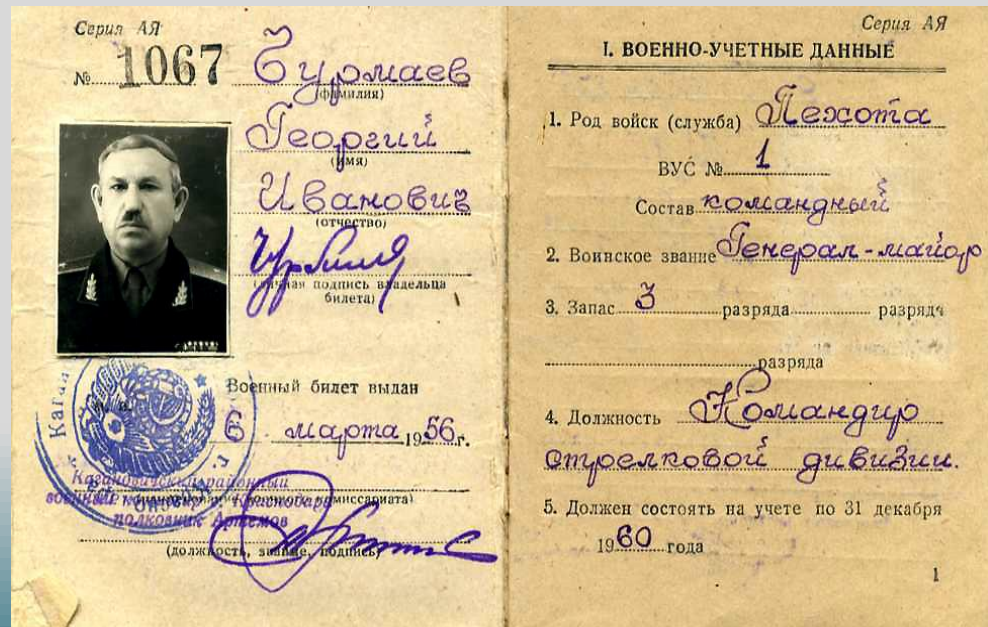 Серия АЯ
№ 1067
Чурмаев
(фамилия)
Георгий
(имя)
Иванович
(отчество)
(личная подпись владельца
билета)
Военный билет выдан
6 марта 1956 г.
Кагановичский районный
военный комиссар г. Краснодара
комиссариата)
полковник Артемов
(должность, звание, подпись)
Серия АЯ
I. ВОЕННО-УЧЕТНЫЕ ДАННЫЕ
1. Род войск (служба) Пехота
ВУС № 1
Состав командный
2. Воинское звание Генерал-майор
3. Запас 3 разряда разряда
разряда
4. Должность Командир
стрелковой дивизии.
5. Должен состоять на учете по 31 декабря
1960 года
1